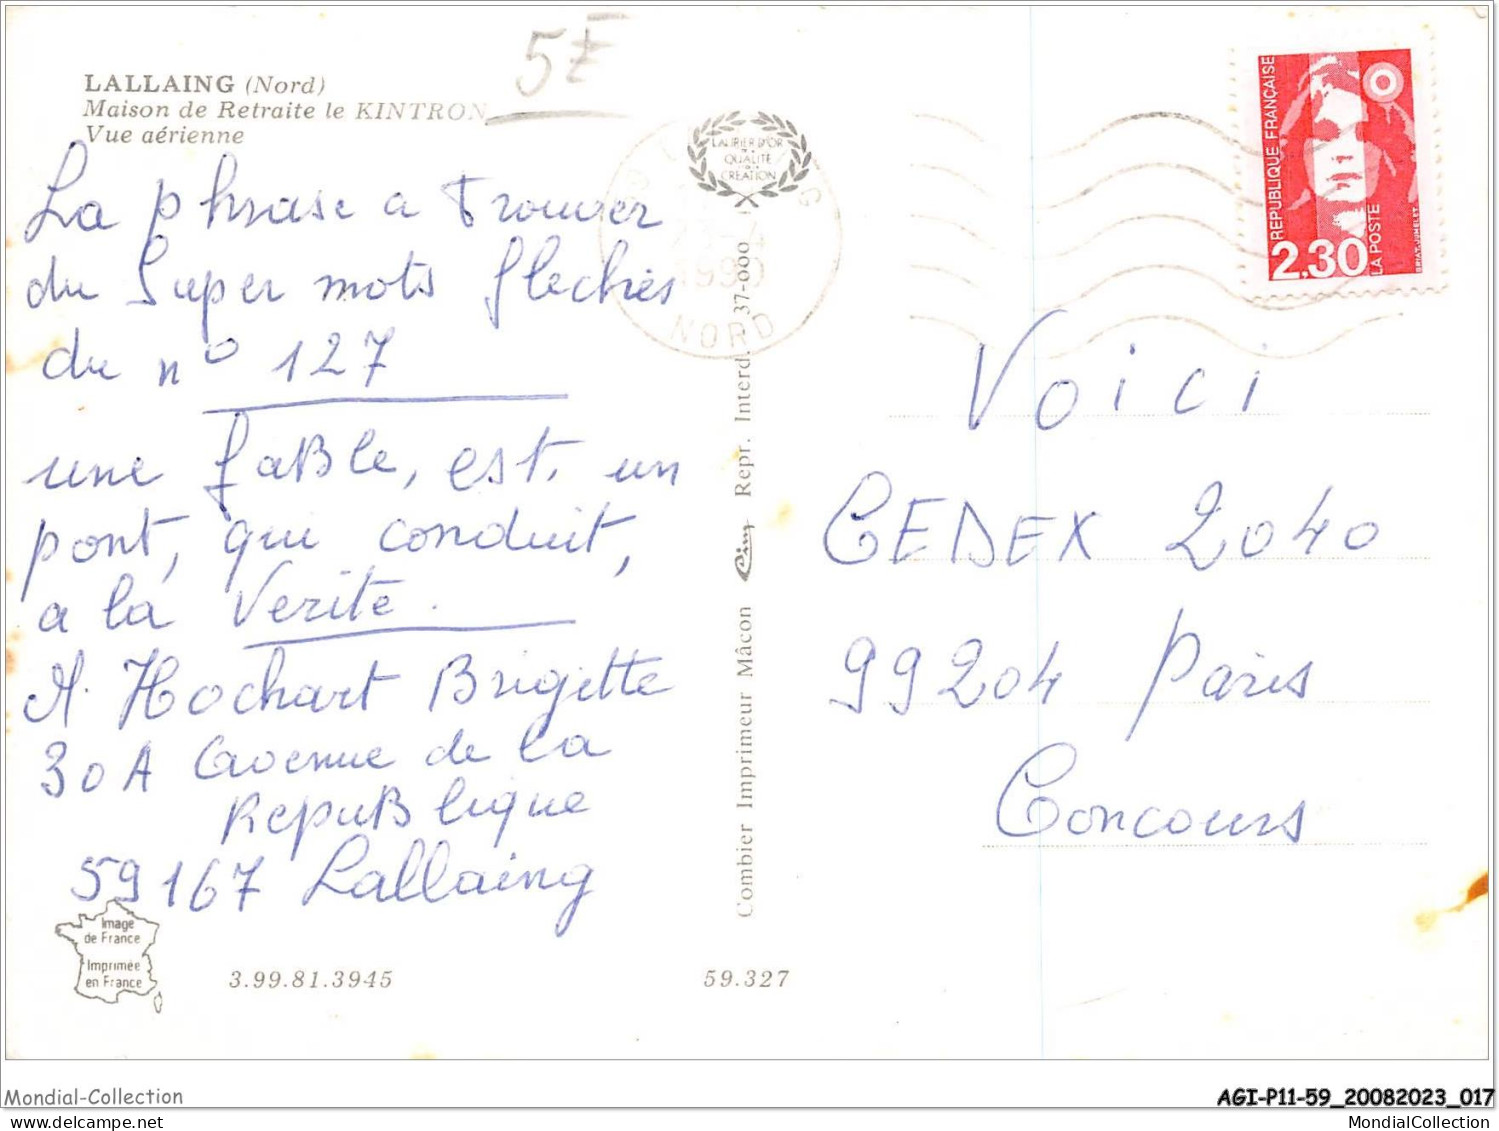 LALLAING (Nord)
Maison de Retraite le KINTRON
Vue aérienne
5€
La phrase a trouver
du Super mots flechés
du n° 127
une faBle, est, un
pont, qui conduit,
a la Verité.
M. Hochart Brigitte
30A avenue de la
RepuBlique
59167 Lallaing
Image
de France
Imprimée
en France
3.99.81.3945
59.327
LAURIER D'OR
QUALITÉ
CRÉATION
1990
NORD
Combier Imprimeur Mâcon Cim Repr. Interd. 37-000
REPUBLIQUE FRANÇAISE
2.30
LA POSTE
BRIAT-JUMELET
Voici
CEDEX 2040
99204 Paris
Concours
Mondial-Collection
AGI-P11-59_20082023_017
MondialCollection.com
MondialCollection